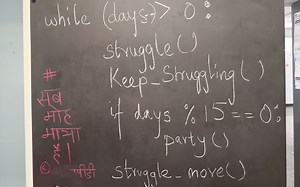 while (days--) > 0 :
struggle()
Keep_Struggling()
if days % 15 == 0:
party()
struggle_move()
#
सब
मोह
माया
है।